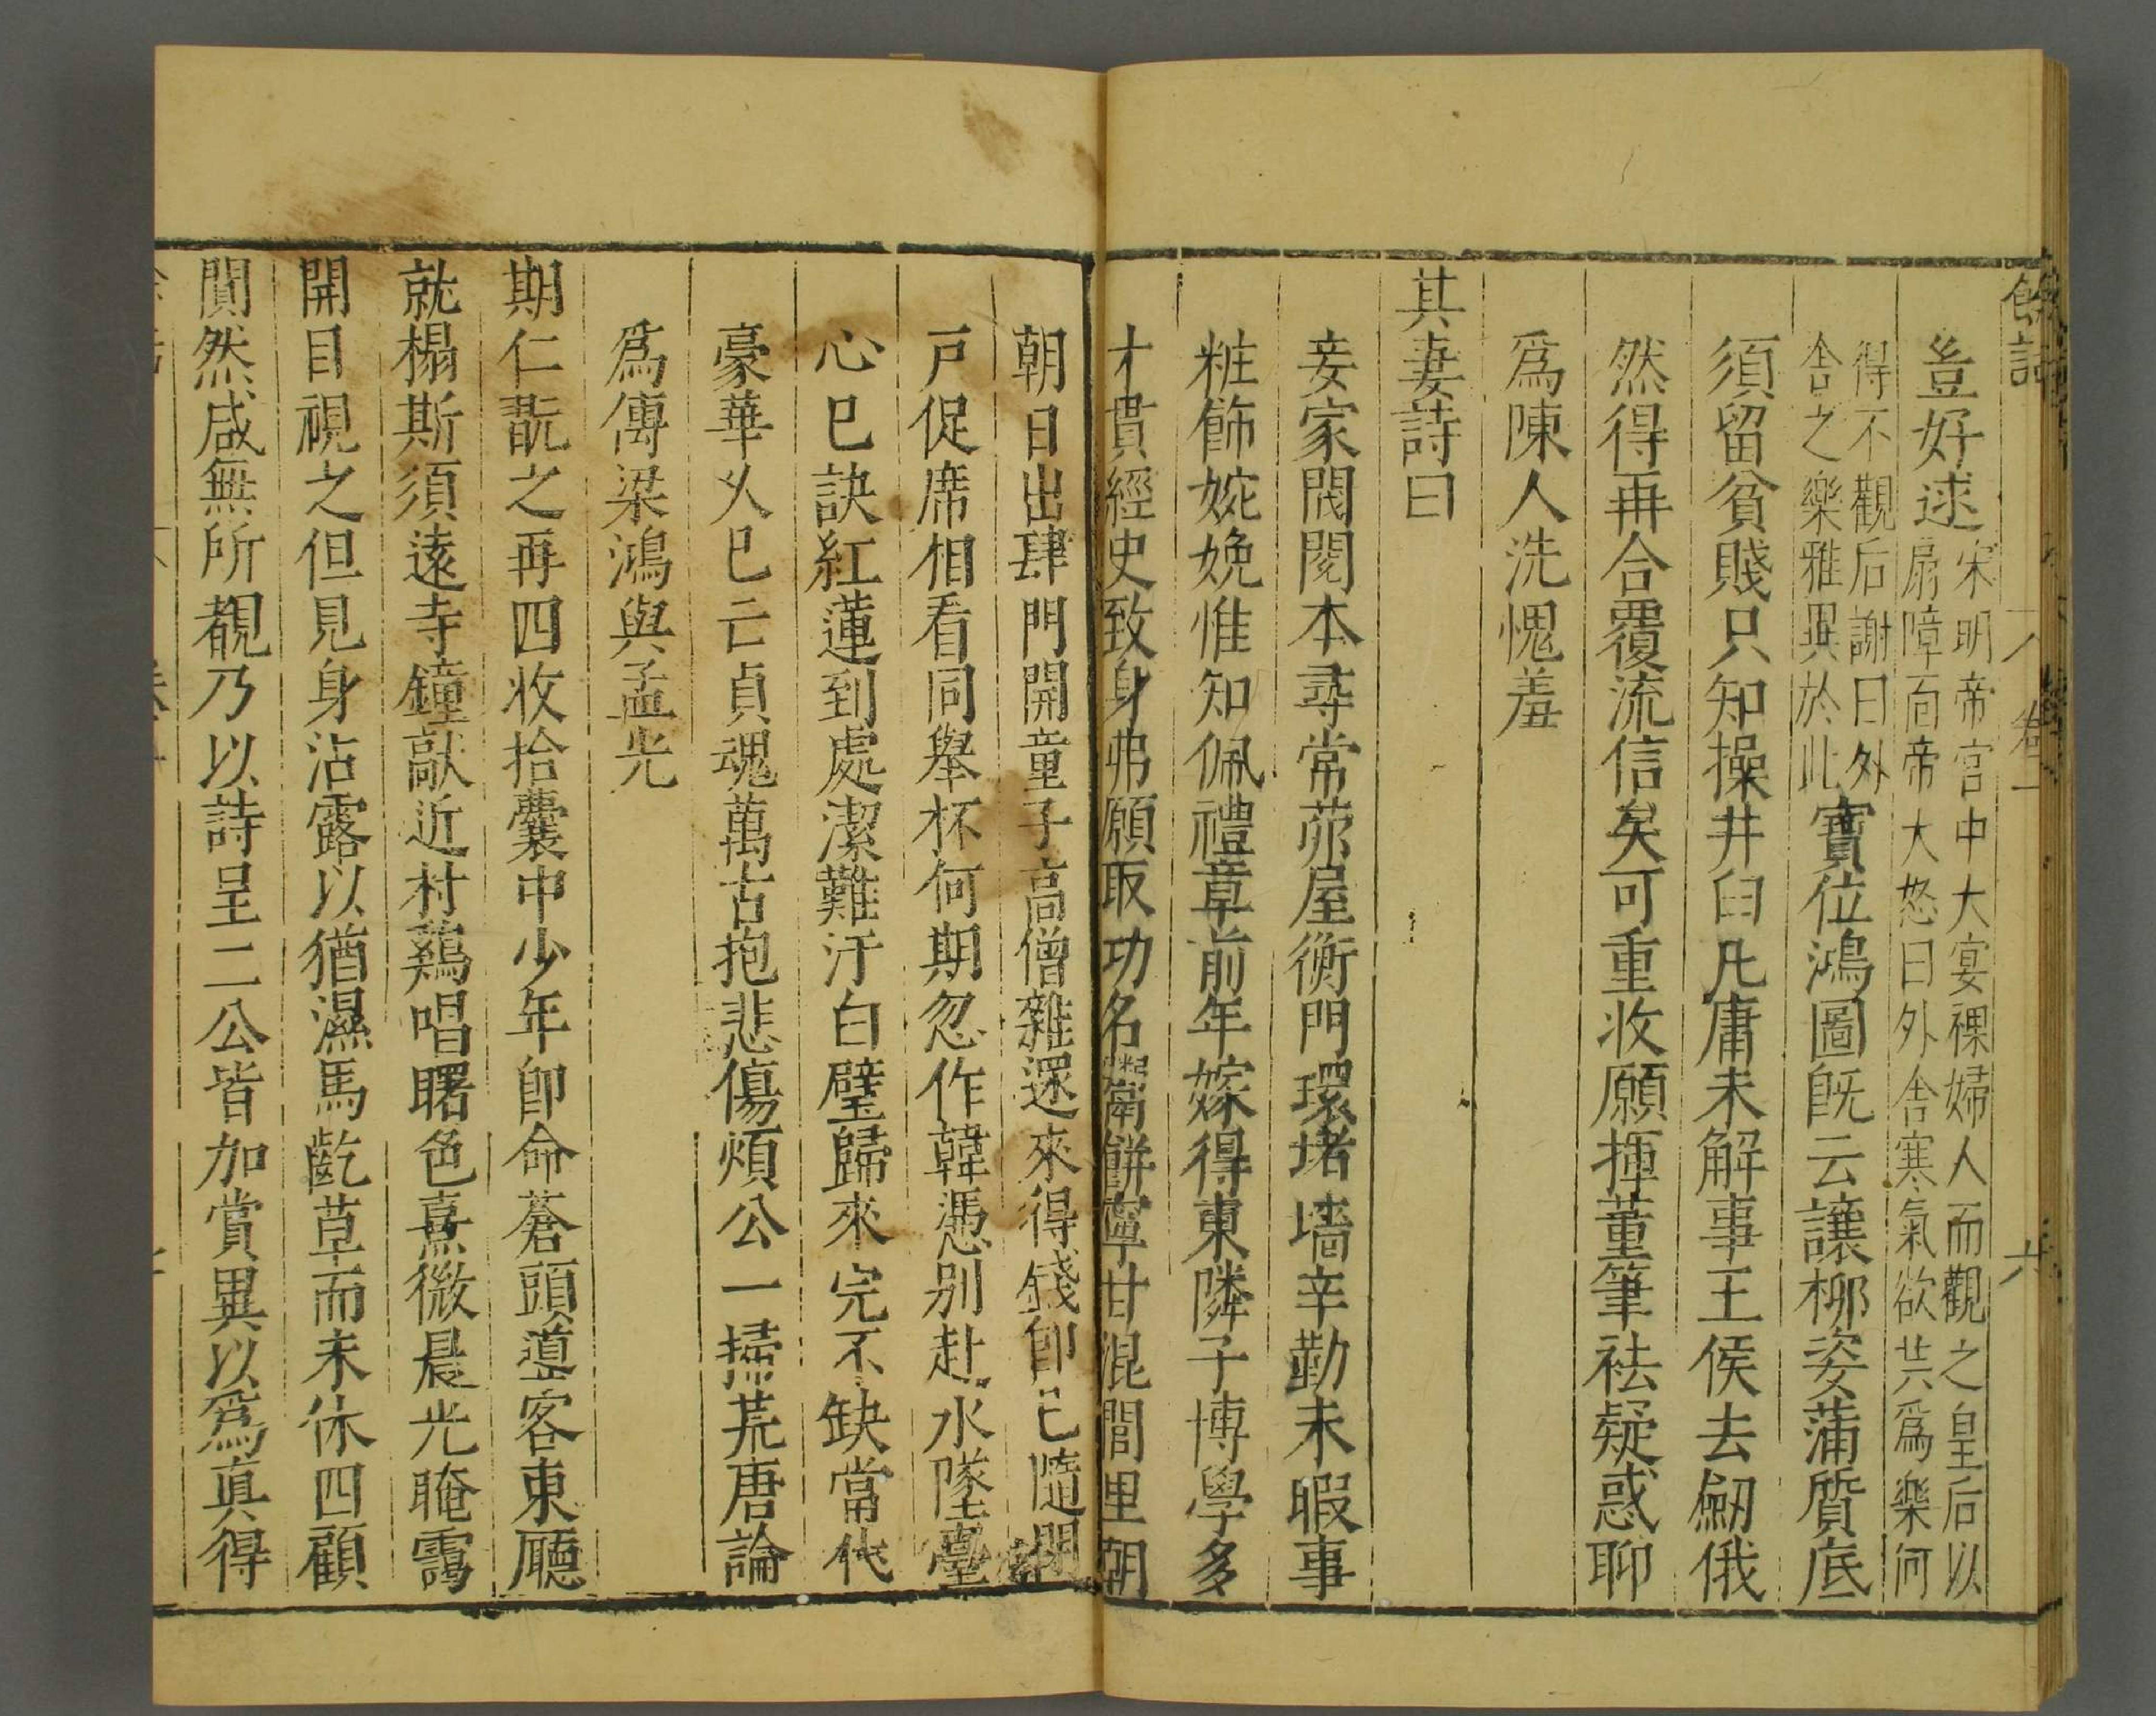 餘話 卷一 六
豈好逑宋明帝宮中大宴裸婦人而觀之皇后以
扇障面帝大怒曰外舍寒氣欲共爲樂何
得不觀后謝曰外
舍之樂雅異於此寶位鴻圖旣云讓柳姿蒲質底
須留貧賤只知操井臼凡庸未解事王侯去劒俄
然得再合覆流信矣可重收願揮董筆祛疑惑聊
爲陳人洗愧羞
其妻詩曰
妾家閥閱本尋常茆屋衡門環堵墻辛勤未暇事
粧飾婉娩惟知佩禮章前年嫁得東隣子博學多
才貫經史致身弗願取功名鬻餅寧甘混閭里朝
朝日出肆門開童子高僧雜還來得錢卽已隨
戸促席相看同舉杯何期忽作韓憑别赴水墜臺
心已訣紅蓮到處潔難汙白璧歸來完不缺當代
豪華久已亡貞魂萬古抱悲傷煩公一掃荒唐論
爲傳梁鴻與孟光
期仁翫之再四收拾囊中少年卽命蒼頭導客東廳
就榻斯須遠寺鐘敲近村鷄唱曙色熹微晨光晻靄
開目視之但見身沾露以猶濕馬齕草而未休四顧
闃然咸無所覩乃以詩呈二公皆加賞異以爲真得